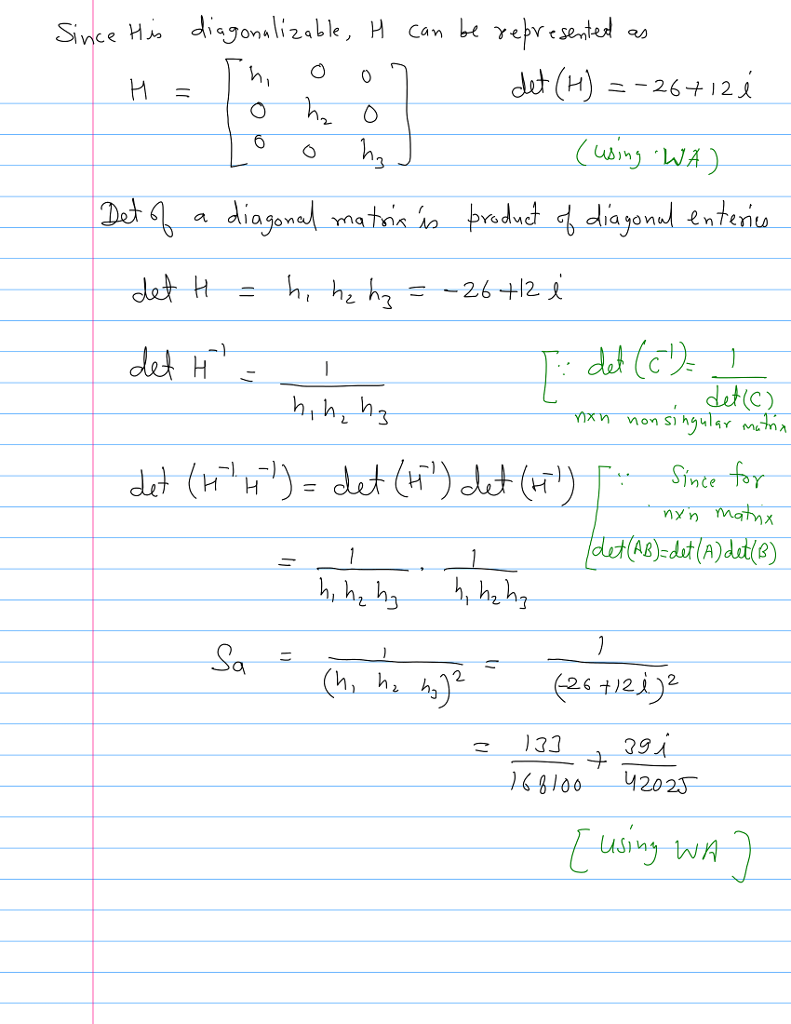 Since H is diagonalizable, H can be represented as
H = [ h₁ 0 0
0 h₂ 0
0 0 h₃ ]
det (H) = -26+12i
(using WA)
Det of a diagonal matrix is product of diagonal enteries
det H = h₁ h₂ h₃ = -26+12i
det H⁻¹ = 1 / h₁ h₂ h₃
[∵ det (C⁻¹) = 1 / det(C)
nxn non singular matrix
det (H⁻¹ H⁻¹) = det (H⁻¹) det (H⁻¹)
[∵ Since for
nxn matrix
det(AB)=det(A)det(B)
= 1 / h₁ h₂ h₃ · 1 / h₁ h₂ h₃
Sa = 1 / (h₁ h₂ h₃)² = 1 / (-26+12i)²
= 133 / 168100 + 39i / 42025
[using WA]